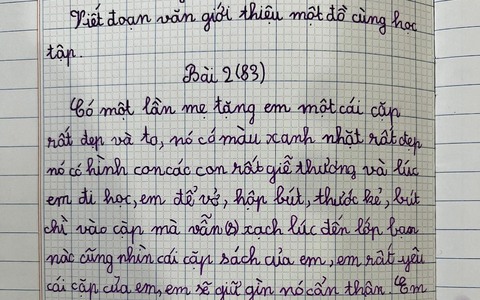 Viết đoạn văn giới thiệu một đồ cùng học
tập.
Bài 2(83)
Có một lần mẹ tặng em một cái cặp
rất đẹp và to, nó có màu xanh nhạt rất đẹp
nó có hình con các con rất giễ thương và lúc
em đi học, em để vở, hộp bút, thước kẻ, bút
chì vào cặp mà vẫn (s) xach lúc đến lớp bạn
nào cũng nhìn cái cặp sách của em, em rất yêu
cái cặp của em, em sẽ giữ gìn nó cẩn thận. Em